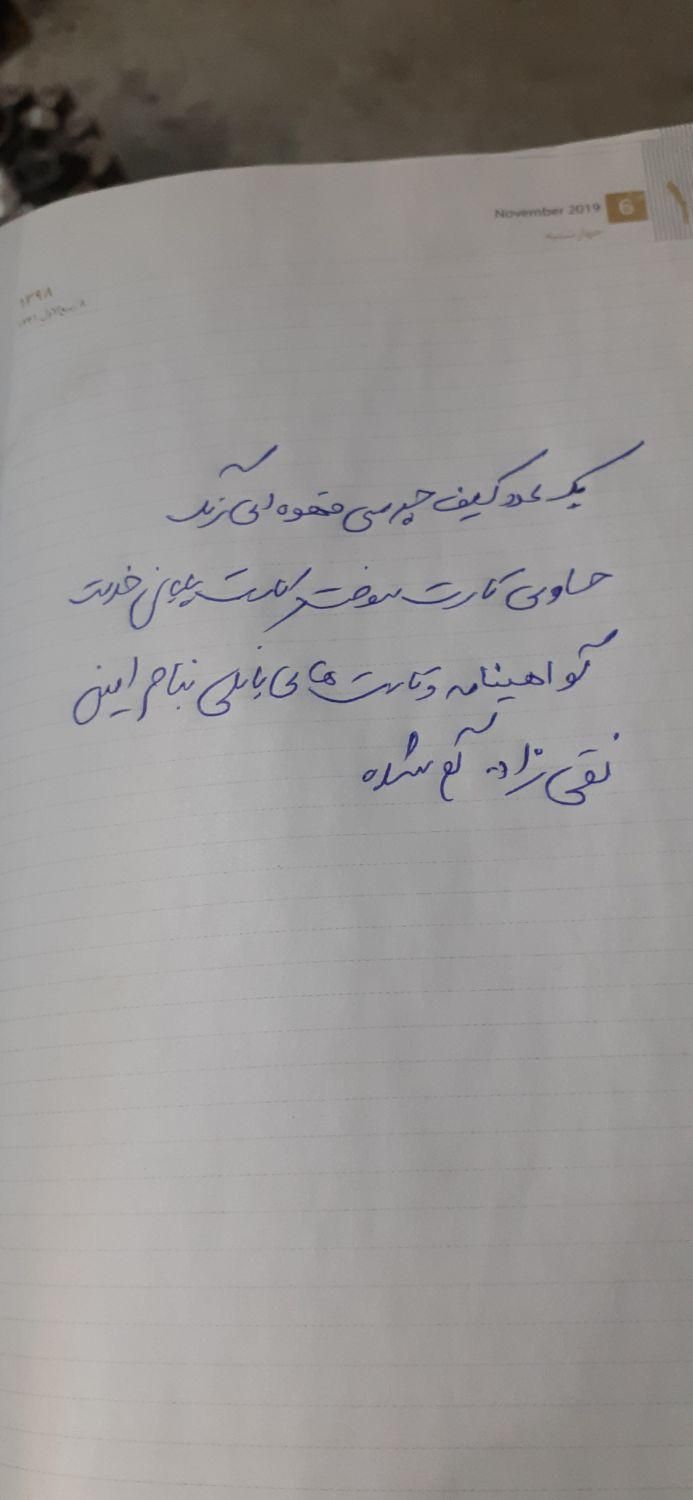 November 2019 6
چهارشنبه
۱۳۹۸
یک عدد کیف چرمی قهوه ای رنگ
حاوی کارت سوخت و کارت پایان خدمت
گواهینامه و کارت های بانکی بنام امین
نقی زاده گم شده